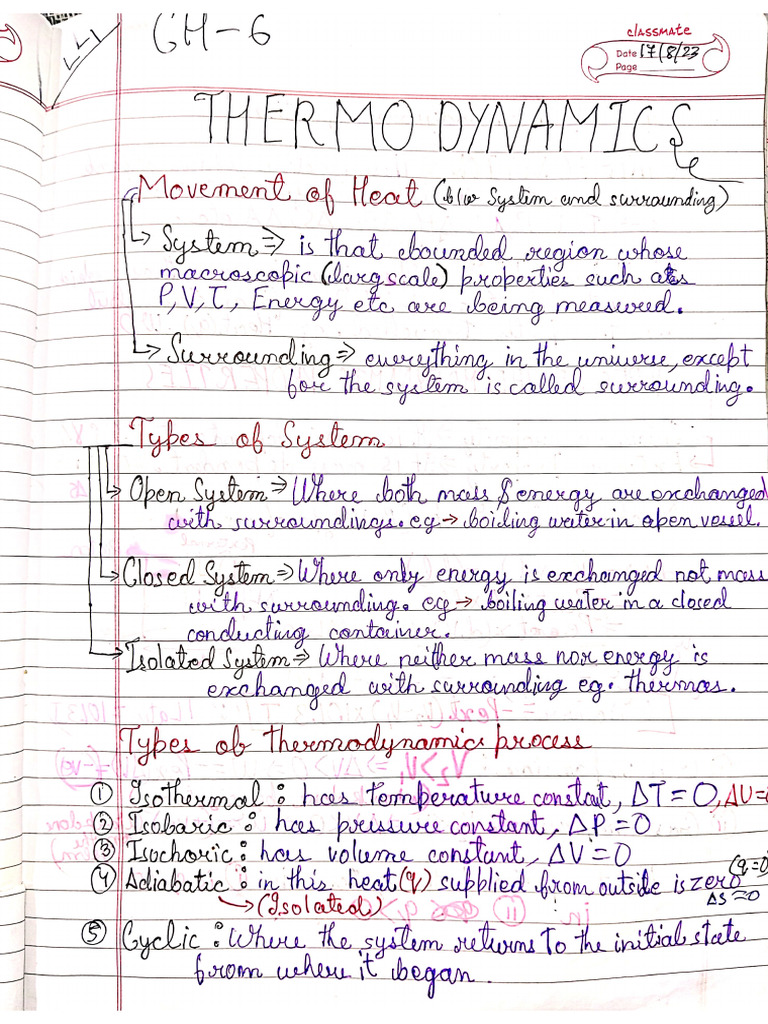 CH-6
classmate
Date 17/8/23
Page
THERMODYNAMICS
Movement of Heat (b/w System and surrounding)
System ⇒ is that bounded region whose
macroscopic (larg scale) properties such as
P, V, T, Energy etc are being measured.
Surrounding ⇒ everything in the universe, except
for the system is called surrounding.
Types of System
Open System ⇒ Where both mass & energy are exchanged
with surroundings. eg → boiling water in open vessel.
Closed System ⇒ Where only energy is exchanged not mass
with surrounding. eg → boiling water in a closed
conducting container.
Isolated System ⇒ Where neither mass nor energy is
exchanged with surrounding eg. thermos.
Types of thermodynamics process
① Isothermal : has temperature constat, ΔT = 0, ΔU=0
② Isobaric : has pressure constant, ΔP = 0
③ Isochoric : has volume constant, ΔV = 0
④ Adiabatic : in this heat (q) supplied from outside is zero (q=0)
→ (Isolated) ΔS = 0
⑤ Cyclic : Where the system returns to the initial state
from where it began.